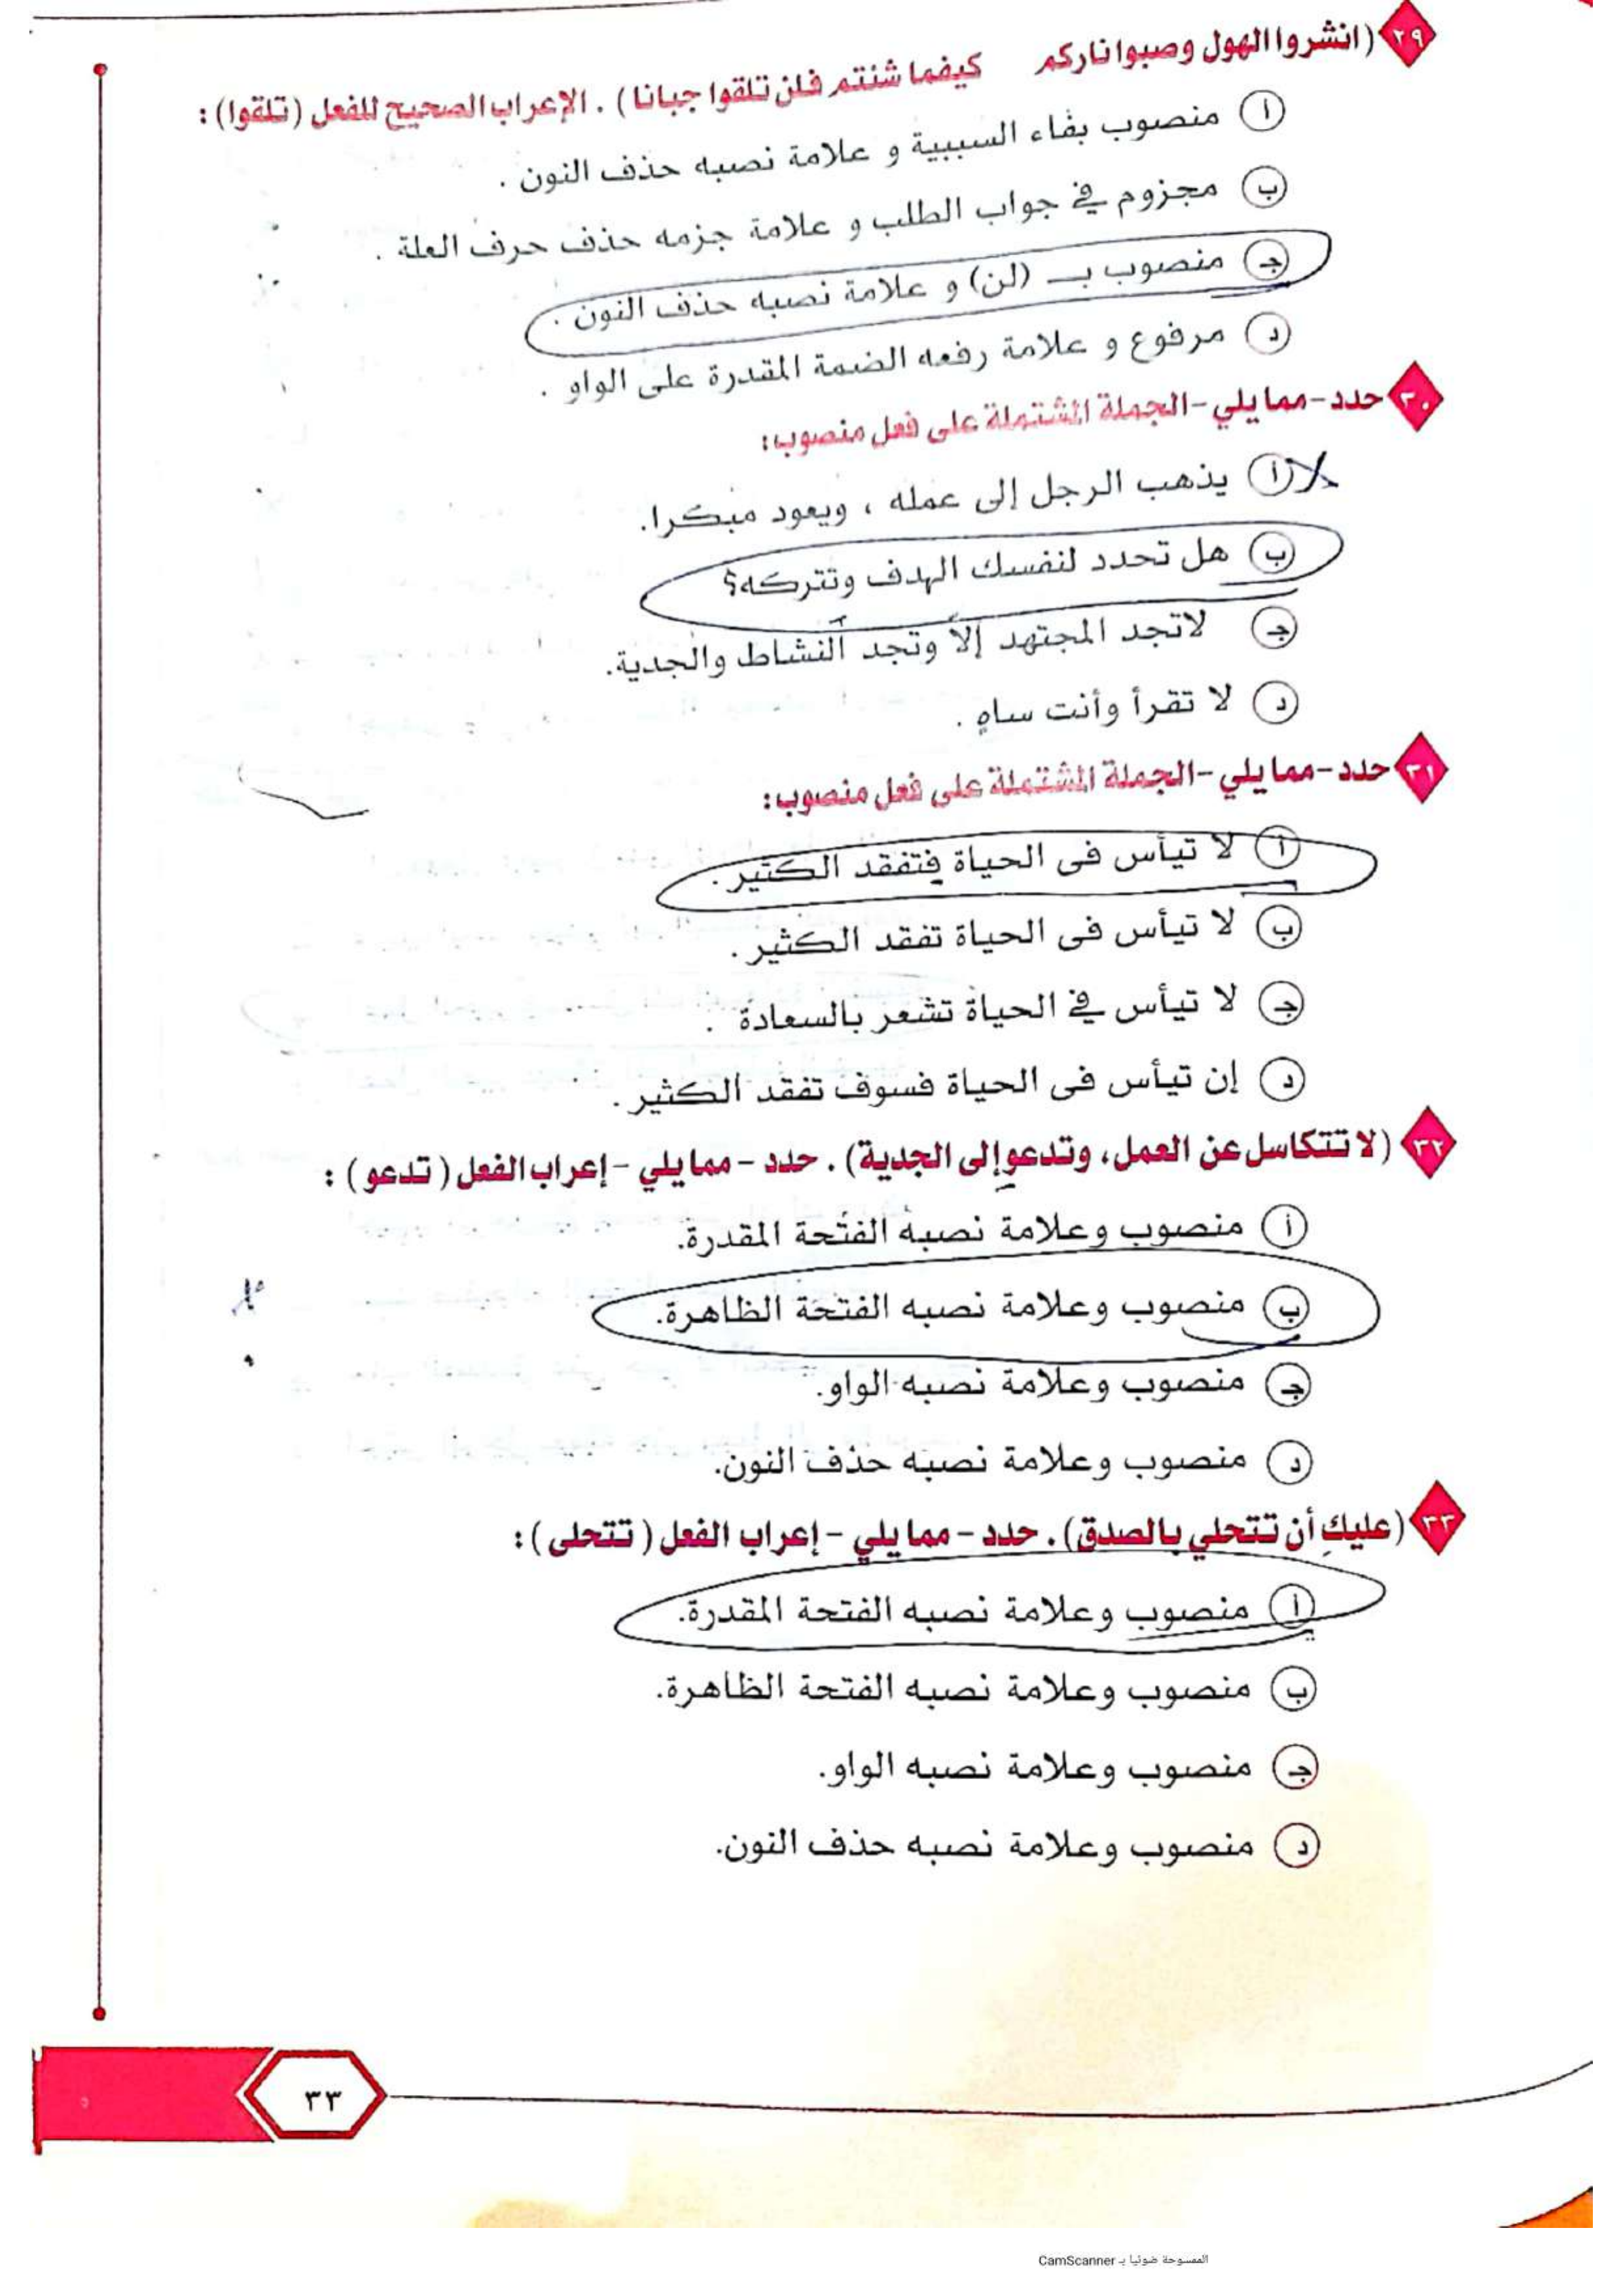 ٢٩ (انشروا الهول وصبوا ناركم كيفما شئتم فلن تلقوا جبانا) . الإعراب الصحيح للفعل (تلقوا) :
أ منصوب بفاء السببية و علامة نصبه حذف النون .
ب مجزوم في جواب الطلب و علامة جزمه حذف حرف العلة .
جـ منصوب بـ (لن) و علامة نصبه حذف النون .
د مرفوع و علامة رفعه الضمة المقدرة على الواو .
٣٠ حدد - مما يلي - الجملة المشتملة على فعل منصوب:
أ يذهب الرجل إلى عمله ، ويعود مبكرا.
ب هل تحدد لنفسك الهدف وتتركه؟
جـ لاتجد المجتهد إلا وتجد النشاط والجدية.
د لا تقرأ وأنت ساهٍ .
٣١ حدد - مما يلي - الجملة المشتملة على فعل منصوب:
أ لا تيأس فى الحياة فتفقد الكثير .
ب لا تيأس فى الحياة تفقد الكثير .
جـ لا تيأس في الحياة تشعر بالسعادة .
د إن تيأس فى الحياة فسوف تفقد الكثير .
٣٢ (لا تتكاسل عن العمل، وتدعو إلى الجدية) . حدد - مما يلي - إعراب الفعل (تدعو) :
أ منصوب وعلامة نصبه الفتحة المقدرة.
ب منصوب وعلامة نصبه الفتحة الظاهرة.
جـ منصوب وعلامة نصبه الواو.
د منصوب وعلامة نصبه حذف النون.
٣٣ (عليكِ أن تتحلي بالصدق) . حدد - مما يلي - إعراب الفعل (تتحلى) :
أ منصوب وعلامة نصبه الفتحة المقدرة.
ب منصوب وعلامة نصبه الفتحة الظاهرة.
جـ منصوب وعلامة نصبه الواو.
د منصوب وعلامة نصبه حذف النون.
٣٣
الممسوحة ضوئيا بـ CamScanner